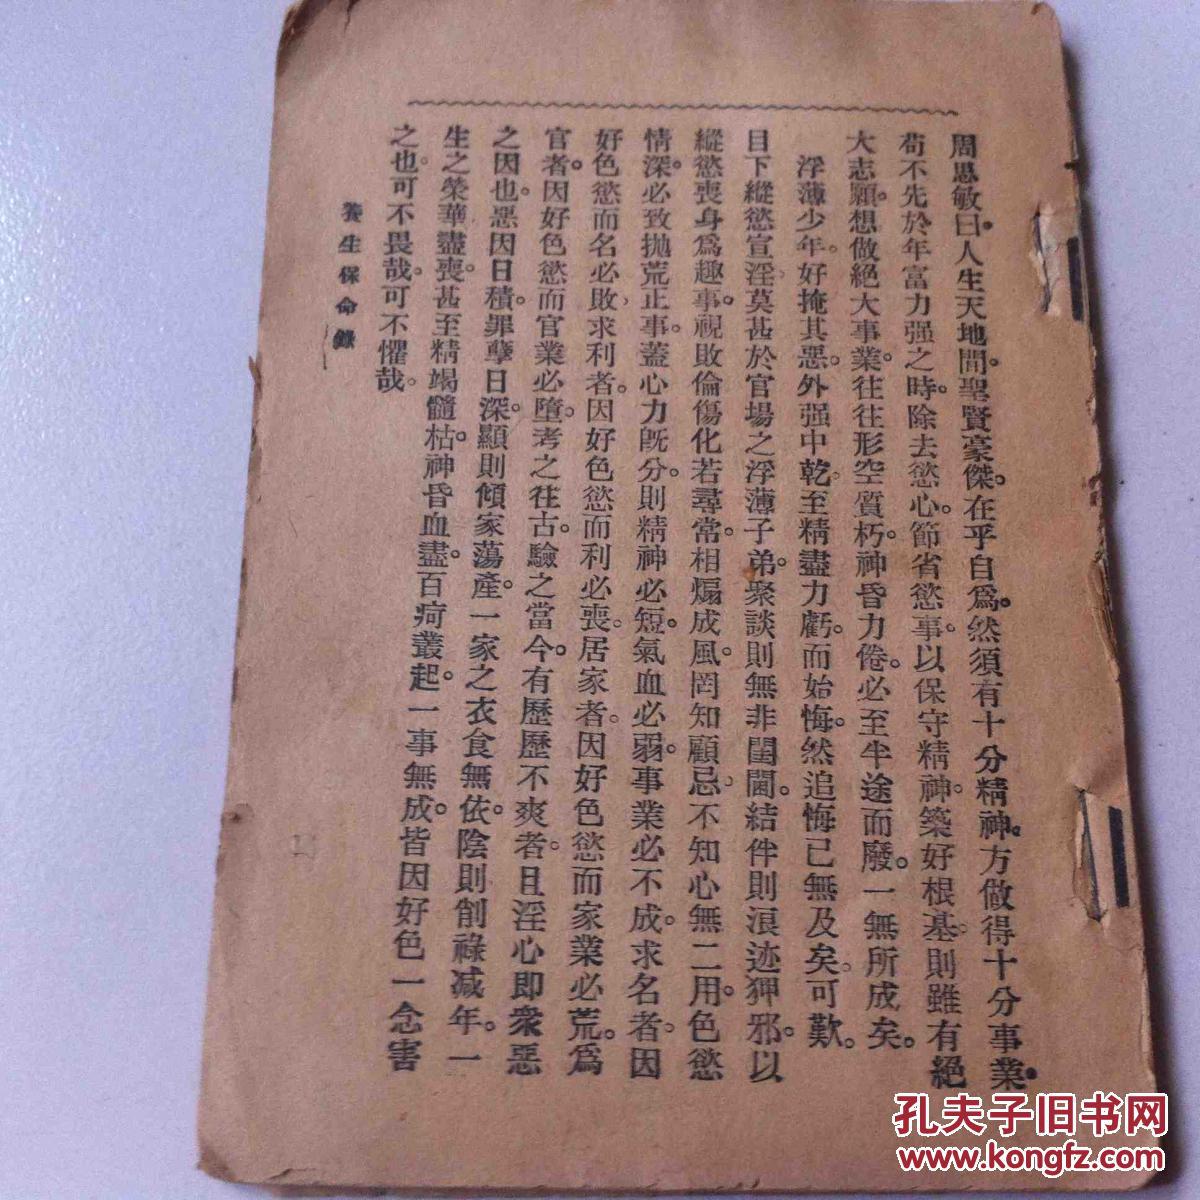 周思敏曰。人生天地間。聖賢豪傑。在乎自爲。然須有十分精神。方做得十分事業。
苟不先於年富力强之時。除去慾心。節省慾事。以保守精神。築好根基。則雖有絕
大志願。想做絕大事業。往往形空質朽。神昏力倦。必至半途而廢。一無所成矣。
浮薄少年。好掩其惡。外强中乾。至精盡力虧。而始悔。然追悔已無及矣。可歎。
目下縱慾宣淫。莫甚於官場之浮薄子弟。聚談則無非閨閫。結伴則浪迹狎邪。以
縱慾喪身爲趣事。視敗倫傷化若尋常。相煽成風。罔知顧忌。不知心無二用。色慾
情深。必致拋荒正事。蓋心力旣分。則精神必短。氣血必弱。事業必不成。求名者。因
好色慾而名必敗。求利者。因好色慾而利必喪。居家者。因好色慾而家業必荒。爲
官者。因好色慾而官業必墮。考之往古。驗之當今。有歷歷不爽者。且淫心即衆惡
之因也。惡因日積。罪孽日深。顯則傾家蕩產。一家之衣食無依。陰則削祿减年。一
生之榮華盡喪。甚至精竭髓枯。神昏血盡。百疴叢起。一事無成。皆因好色一念害
之也。可不畏哉。可不懼哉。
養生保命錄
孔夫子旧书网
www.kongfz.com